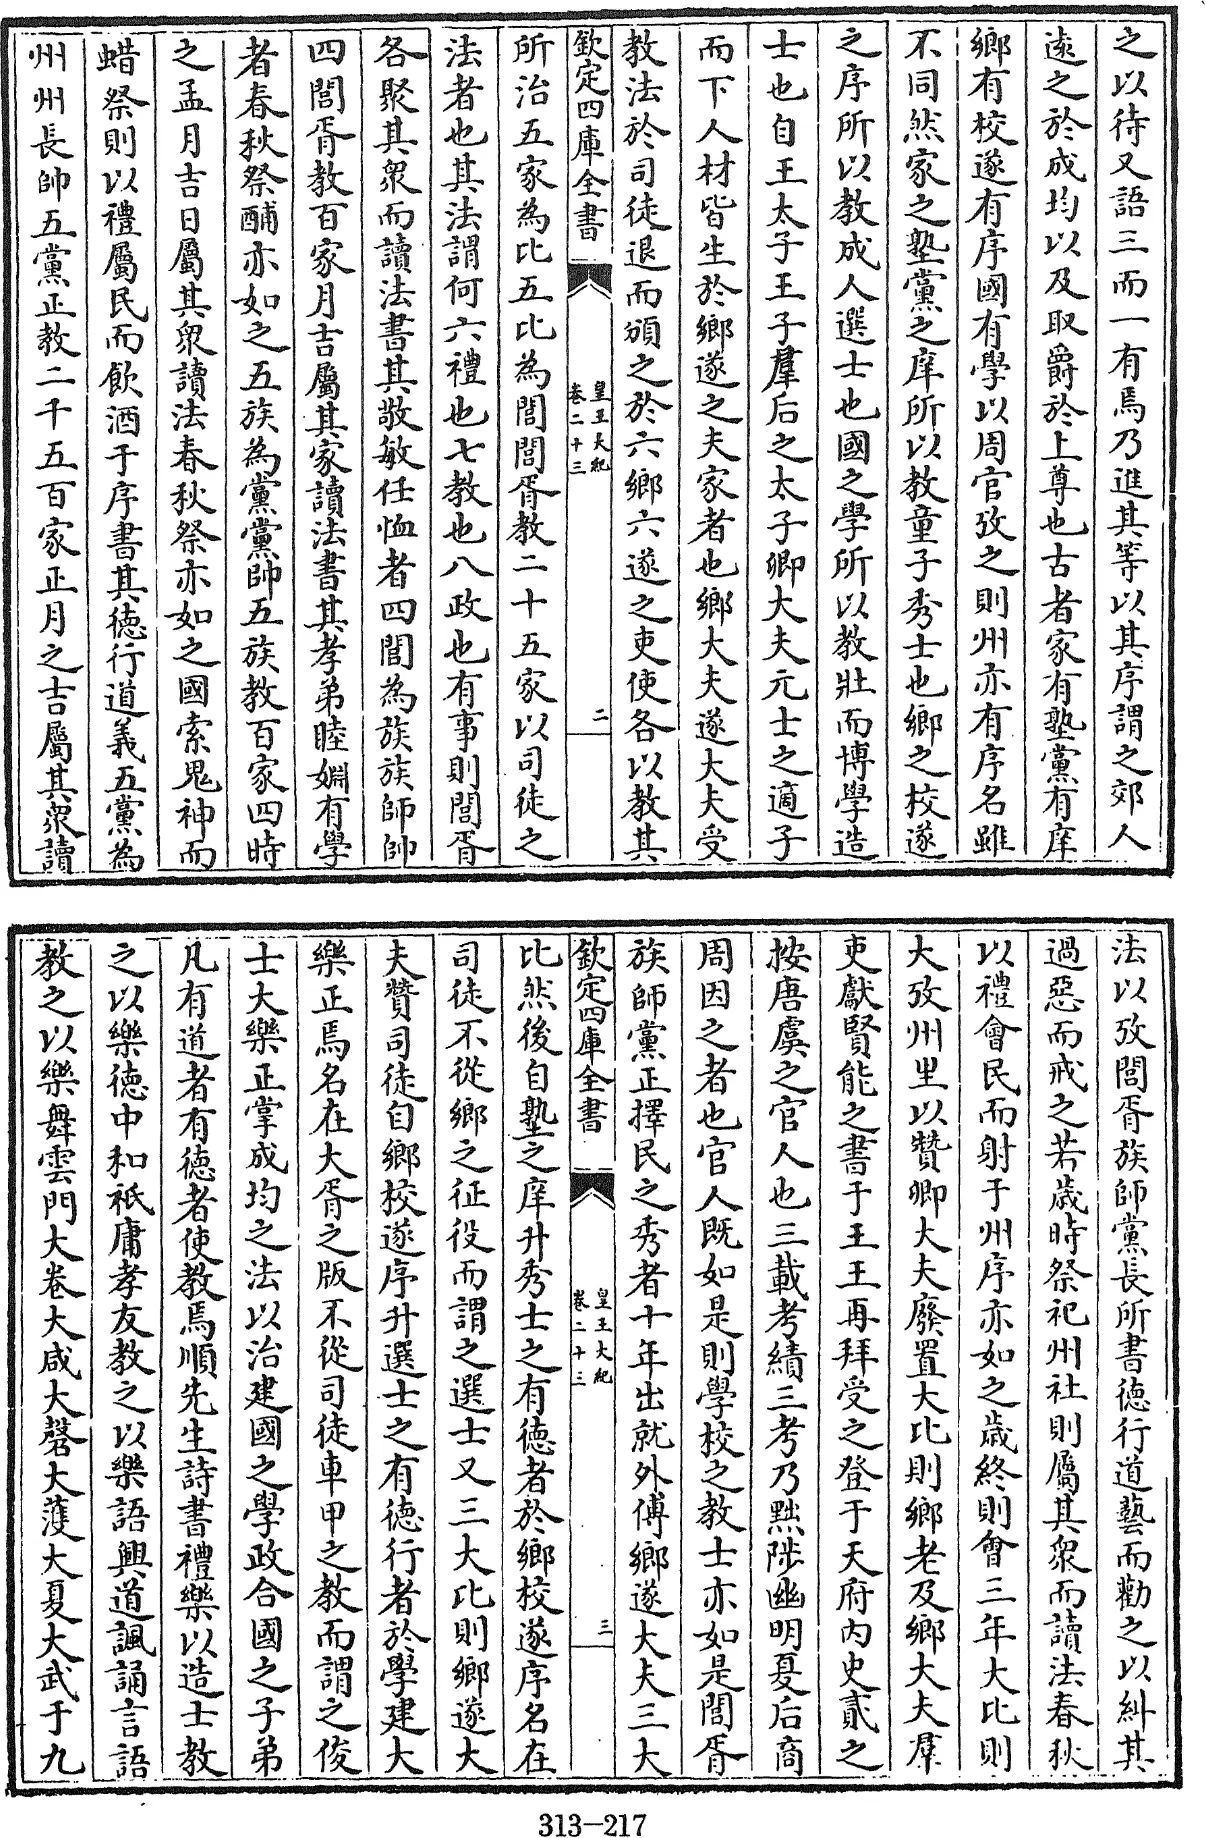 之以待又語三而一有焉乃進其等以其序謂之郊人
逺之於成均以及取爵於上尊也古者家有塾黨有庠
鄉有校遂有序國有學以周官攷之則州亦有序名雖
不同然家之塾黨之庠所以教童子秀士也鄉之校遂
之序所以教成人選士也國之學所以教壯而博學造
士也自王太子王子羣后之太子卿大夫元士之適子
而下人材皆生於鄉遂之夫家者也鄉大夫遂大夫受
教法於司徒退而頒之於六鄉六遂之吏使各以教其
欽定四庫全書
皇王大紀
卷二十三
二
所治五家為比五比為閭閭胥教二十五家以司徒之
法者也其法謂何六禮也七教也八政也有事則閭胥
各聚其衆而讀法書其敬敏任恤者四閭為族族師帥
四閭胥教百家月吉屬其家讀法書其孝弟睦婣有學
者春秋祭酺亦如之五族為黨黨帥五族教百家四時
之孟月吉日屬其衆讀法春秋祭亦如之國索鬼神而
蜡祭則以禮屬民而飲酒于序書其徳行道義五黨為
州州長帥五黨正教二千五百家正月之吉屬其衆讀
法以攷閭胥族師黨長所書徳行道藝而勸之以糾其
過惡而戒之若歲時祭祀州社則屬其衆而讀法春秋
以禮會民而射于州序亦如之歲終則會三年大比則
大攷州里以贊卿大夫廢置大比則鄉老及鄉大夫羣
吏獻賢能之書于王王再拜受之登于天府内史貳之
按唐虞之官人也三載考績三考乃黜陟幽明夏后商
周因之者也官人既如是則學校之教士亦如是閭胥
族師黨正擇民之秀者十年出就外傅鄉遂大夫三大
欽定四庫全書
皇王大紀
卷二十三
三
比然後自塾之庠升秀士之有徳者於鄉校遂序名在
司徒不從鄉之征役而謂之選士又三大比則鄉遂大
夫贊司徒自鄉校遂序升選士之有徳行者於學建大
樂正焉名在大胥之版不從司徒車甲之教而謂之俊
士大樂正掌成均之法以治建國之學政合國之子弟
凡有道者有徳者使教焉順先生詩書禮樂以造士教
之以樂徳中和祗庸孝友教之以樂語興道諷誦言語
教之以樂舞雲門大卷大咸大磬大濩大夏大武于九
313-217